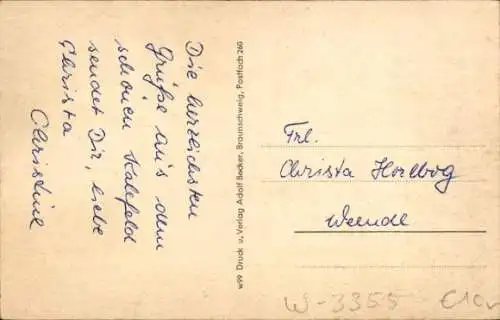 Die herzlichsten
Grüße aus dem
schönen Kalefeld
sendet Dir, liebe
Christa
Christine
w99 Druck u. Verlag Adolf Becker, Braunschweig, Postfach 260
Frl.
Christa
Weende
W-3355 €10,-